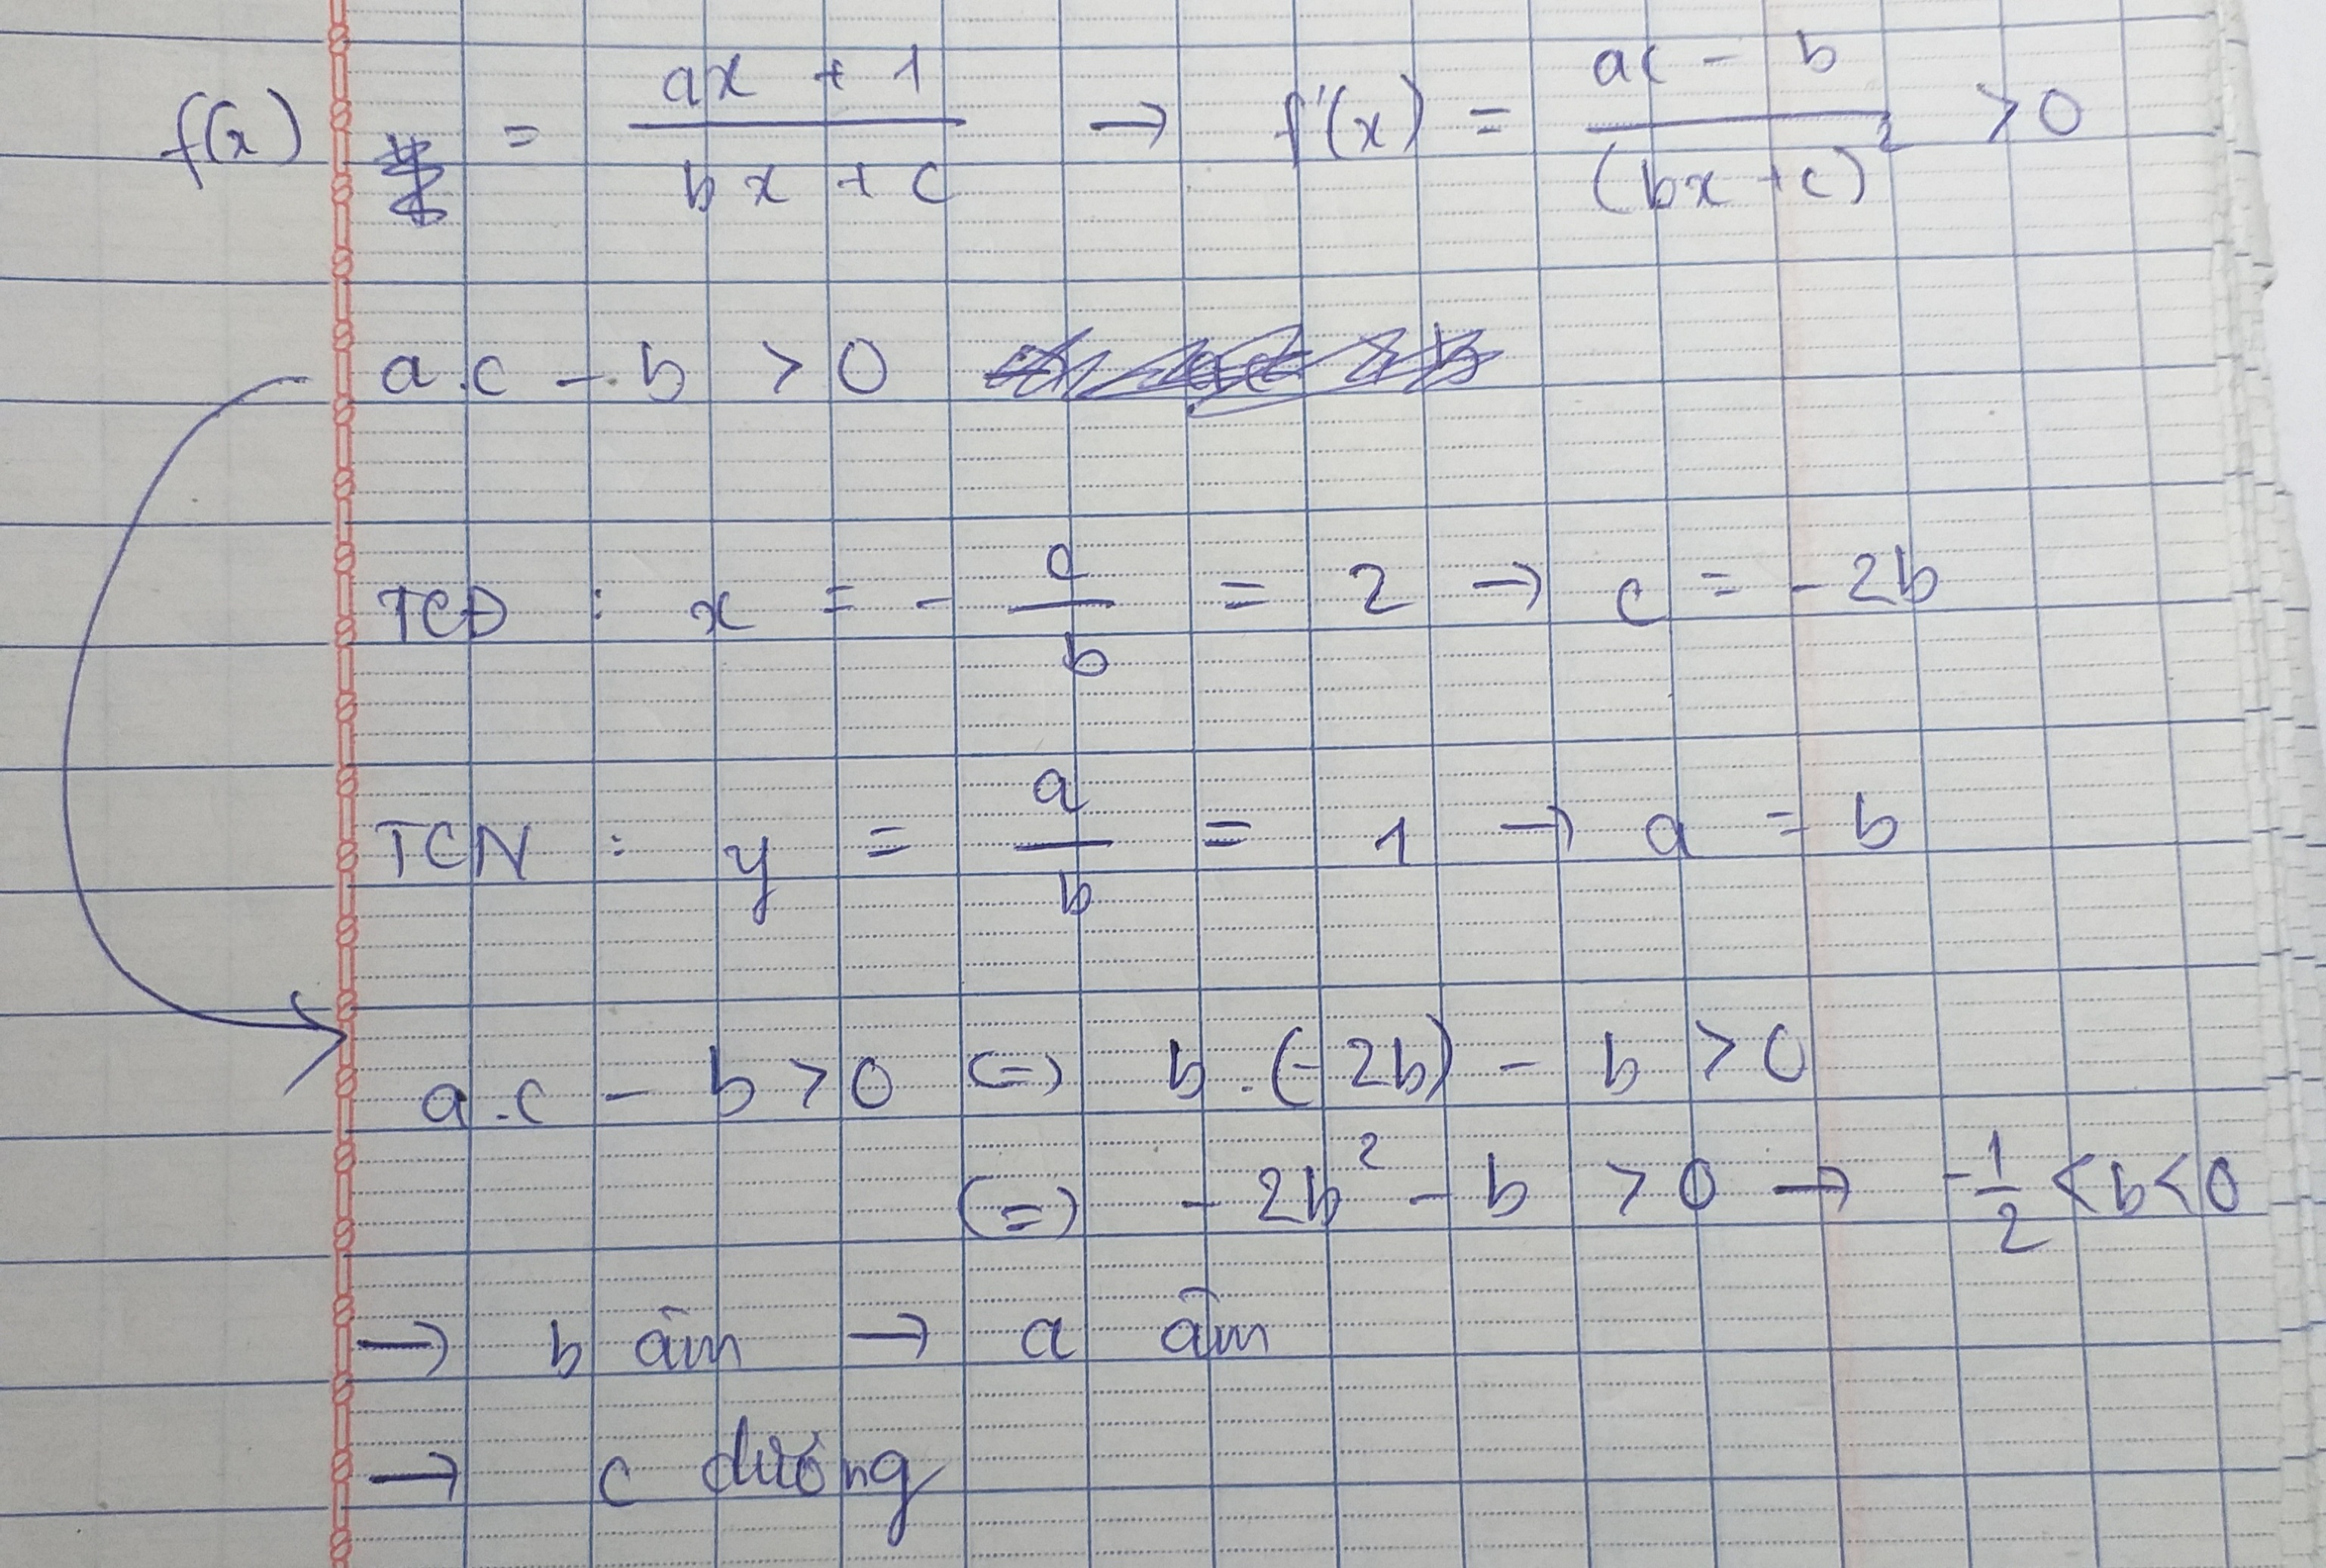 f(x) = (ax + 1)/(bx + c) → f'(x) = (ac - b)/(bx + c)² > 0
a.c - b > 0
TCĐ : x = - c/b = 2 → c = - 2b
TCN : y = a/b = 1 → a = b
a.c - b > 0 (=) b.(-2b) - b > 0
(=) - 2b² - b > 0 → -1/2 < b < 0
→ b âm → a âm
→ c dương